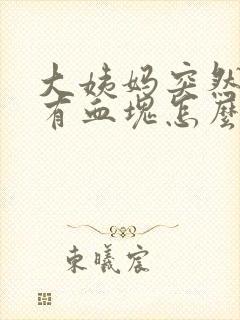 大姨妈突然
有血块怎麼
东曦宸